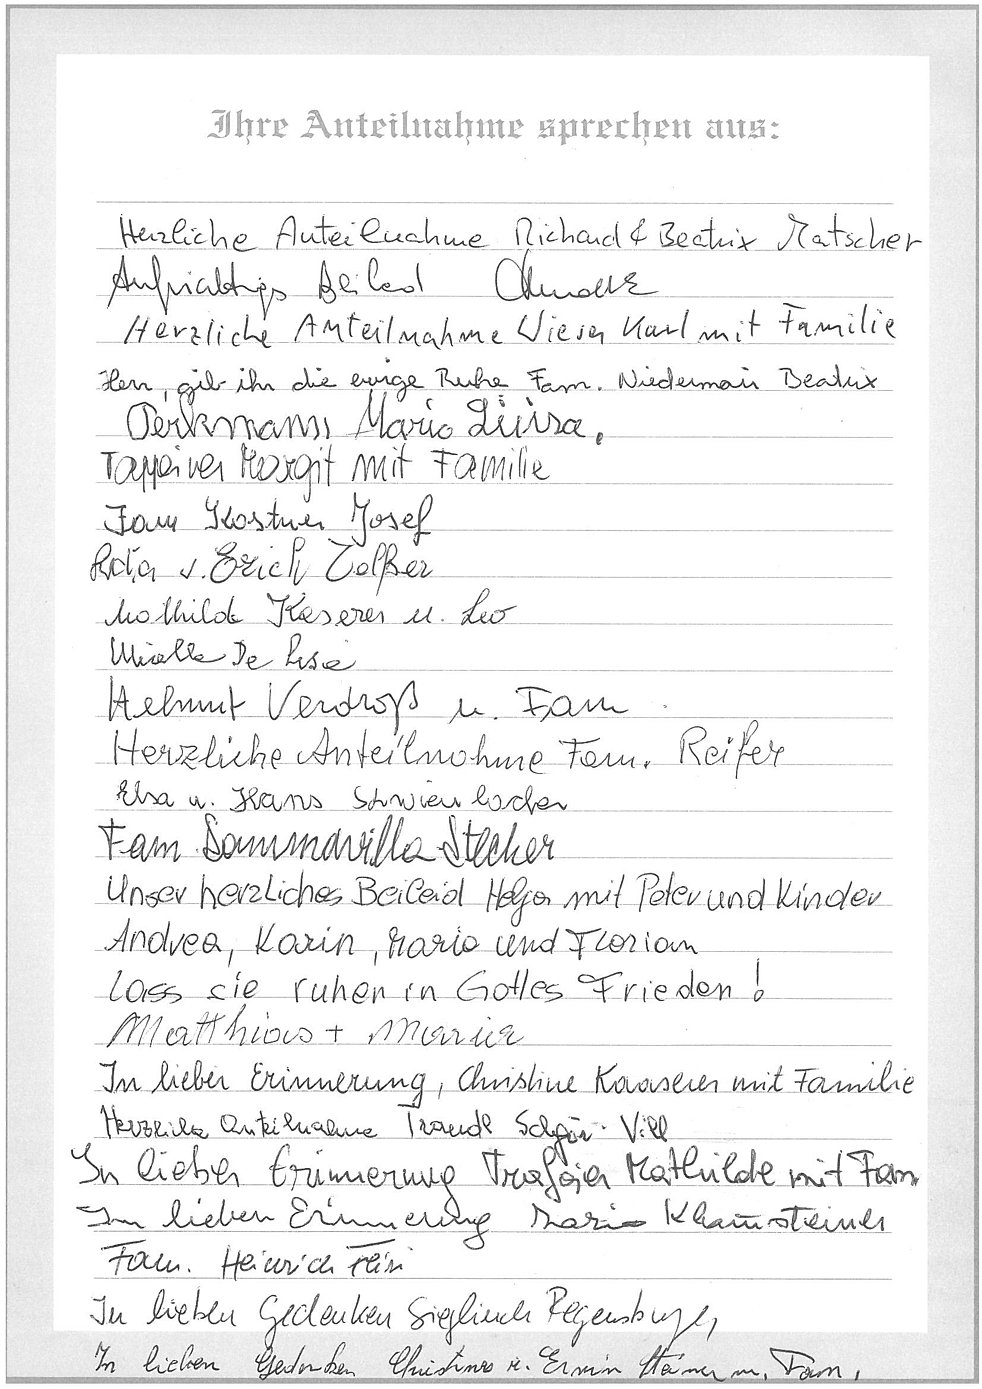 Ihre Anteilnahme sprechen aus:
Herzliche Anteilnahme Richard & Beatrix Matscher
Aufrichtiges Beileid
Herzliche Anteilnahme Wieser Karl mit Familie
Herr, gib ihr die ewige Ruhe Fam. Niedermair Beatrix
Maria Luisa.
Tappeiner Margit mit Familie
Fam Kostner Josef
u. Erich
Mathilde Kaserer u. Leo
De
Helmut Verdroß u. Fam
Herzliche Anteilnahme Fam. Reifer
Elsa u. Hans Schwienbacher
Fam Sommavilla Stecher
Unser herzliches Beileid Helga mit Peter und Kinder
Andrea, Karin, Mario und Florian
Lass sie ruhen in Gottes Frieden!
Matthias + Maria
In lieber Erinnerung, Christine Kaaserer mit Familie
Herzliche Anteilnahme Traudl
In lieber Erinnerung Trafojer Mathilde mit Fam
In lieber Erinnerung Maria Klaunsteiner
Fam. Heinrich
In lieben Gedenken Sieglinde Regensburger
In lieben Gedenken Christine u. Erwin Steiner u. Fam.